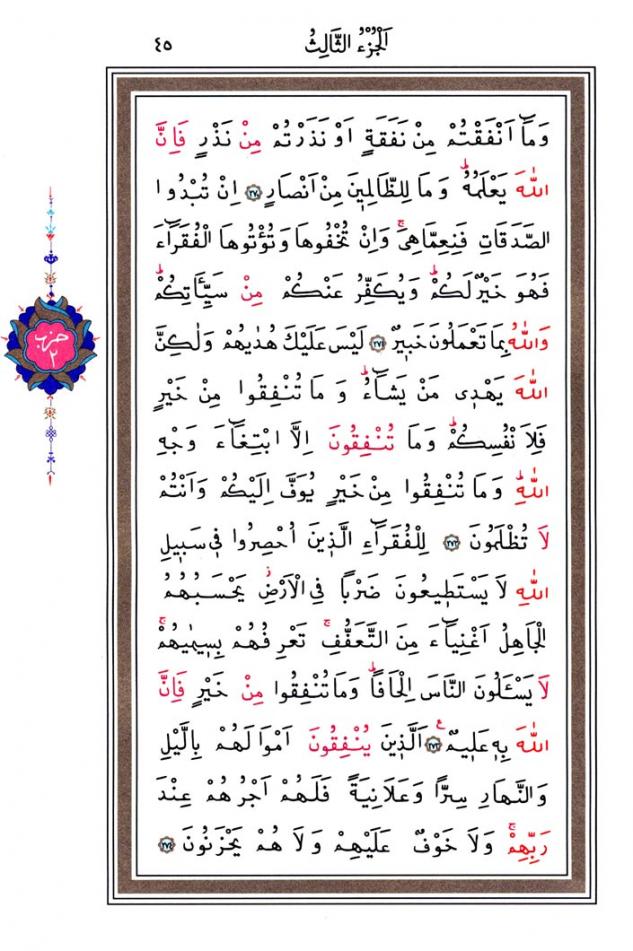 اَلْجُزْءُ الثَّالِثُ
٤٥
وَمَٓا اَنْفَقْتُمْ مِنْ نَفَقَةٍ اَوْ نَذَرْتُمْ مِنْ نَذْرٍ فَاِنَّ
اللّٰهَ يَعْلَمُهُۜ وَمَا لِلظَّالِم۪ينَ مِنْ اَنْصَارٍ ﴿٢٧٠﴾ اِنْ تُبْدُوا
الصَّدَقَاتِ فَنِعِمَّا هِيَۚ وَاِنْ تُخْفُوهَا وَتُؤْتُوهَا الْفُقَرَٓاءَ
فَهُوَ خَيْرٌ لَكُمْۜ وَيُكَفِّرُ عَنْكُمْ مِنْ سَيِّـَٔاتِكُمْۜ
وَاللّٰهُ بِمَا تَعْمَلُونَ خَب۪يرٌ ﴿٢٧١﴾ لَيْسَ عَلَيْكَ هُدٰيهُمْ وَلٰكِنَّ
اللّٰهَ يَهْد۪ي مَنْ يَشَٓاءُۜ وَمَا تُنْفِقُوا مِنْ خَيْرٍ
فَلِاَنْفُسِكُمْۜ وَمَا تُنْفِقُونَ اِلَّا ابْتِغَٓاءَ وَجْهِ
اللّٰهِۜ وَمَا تُنْفِقُوا مِنْ خَيْرٍ يُوَفَّ اِلَيْكُمْ وَاَنْتُمْ
لَا تُظْلَمُونَ ﴿٢٧٢﴾ لِلْفُقَرَٓاءِ الَّذ۪ينَ اُحْصِرُوا ف۪ي سَب۪يلِ
اللّٰهِ لَا يَسْتَط۪يعُونَ ضَرْبًا فِي الْاَرْضِۘ يَحْسَبُهُمُ
الْجَاهِلُ اَغْنِيَٓاءَ مِنَ التَّعَفُّفِۚ تَعْرِفُهُمْ بِس۪يمٰيهُمْۚ
لَا يَسْـَٔلُونَ النَّاسَ اِلْحَافًاۜ وَمَا تُنْفِقُوا مِنْ خَيْرٍ فَاِنَّ
اللّٰهَ بِه۪ عَل۪يمٌ۟ ﴿٢٧٣﴾ اَلَّذ۪ينَ يُنْفِقُونَ اَمْوَالَهُمْ بِالَّيْلِ
وَالنَّهَارِ سِرًّا وَعَلَانِيَةً فَلَهُمْ اَجْرُهُمْ عِنْدَ
رَبِّهِمْۚ وَلَا خَوْفٌ عَلَيْهِمْ وَلَا هُمْ يَحْزَنُونَ ﴿٢٧٤﴾
حزب
٢